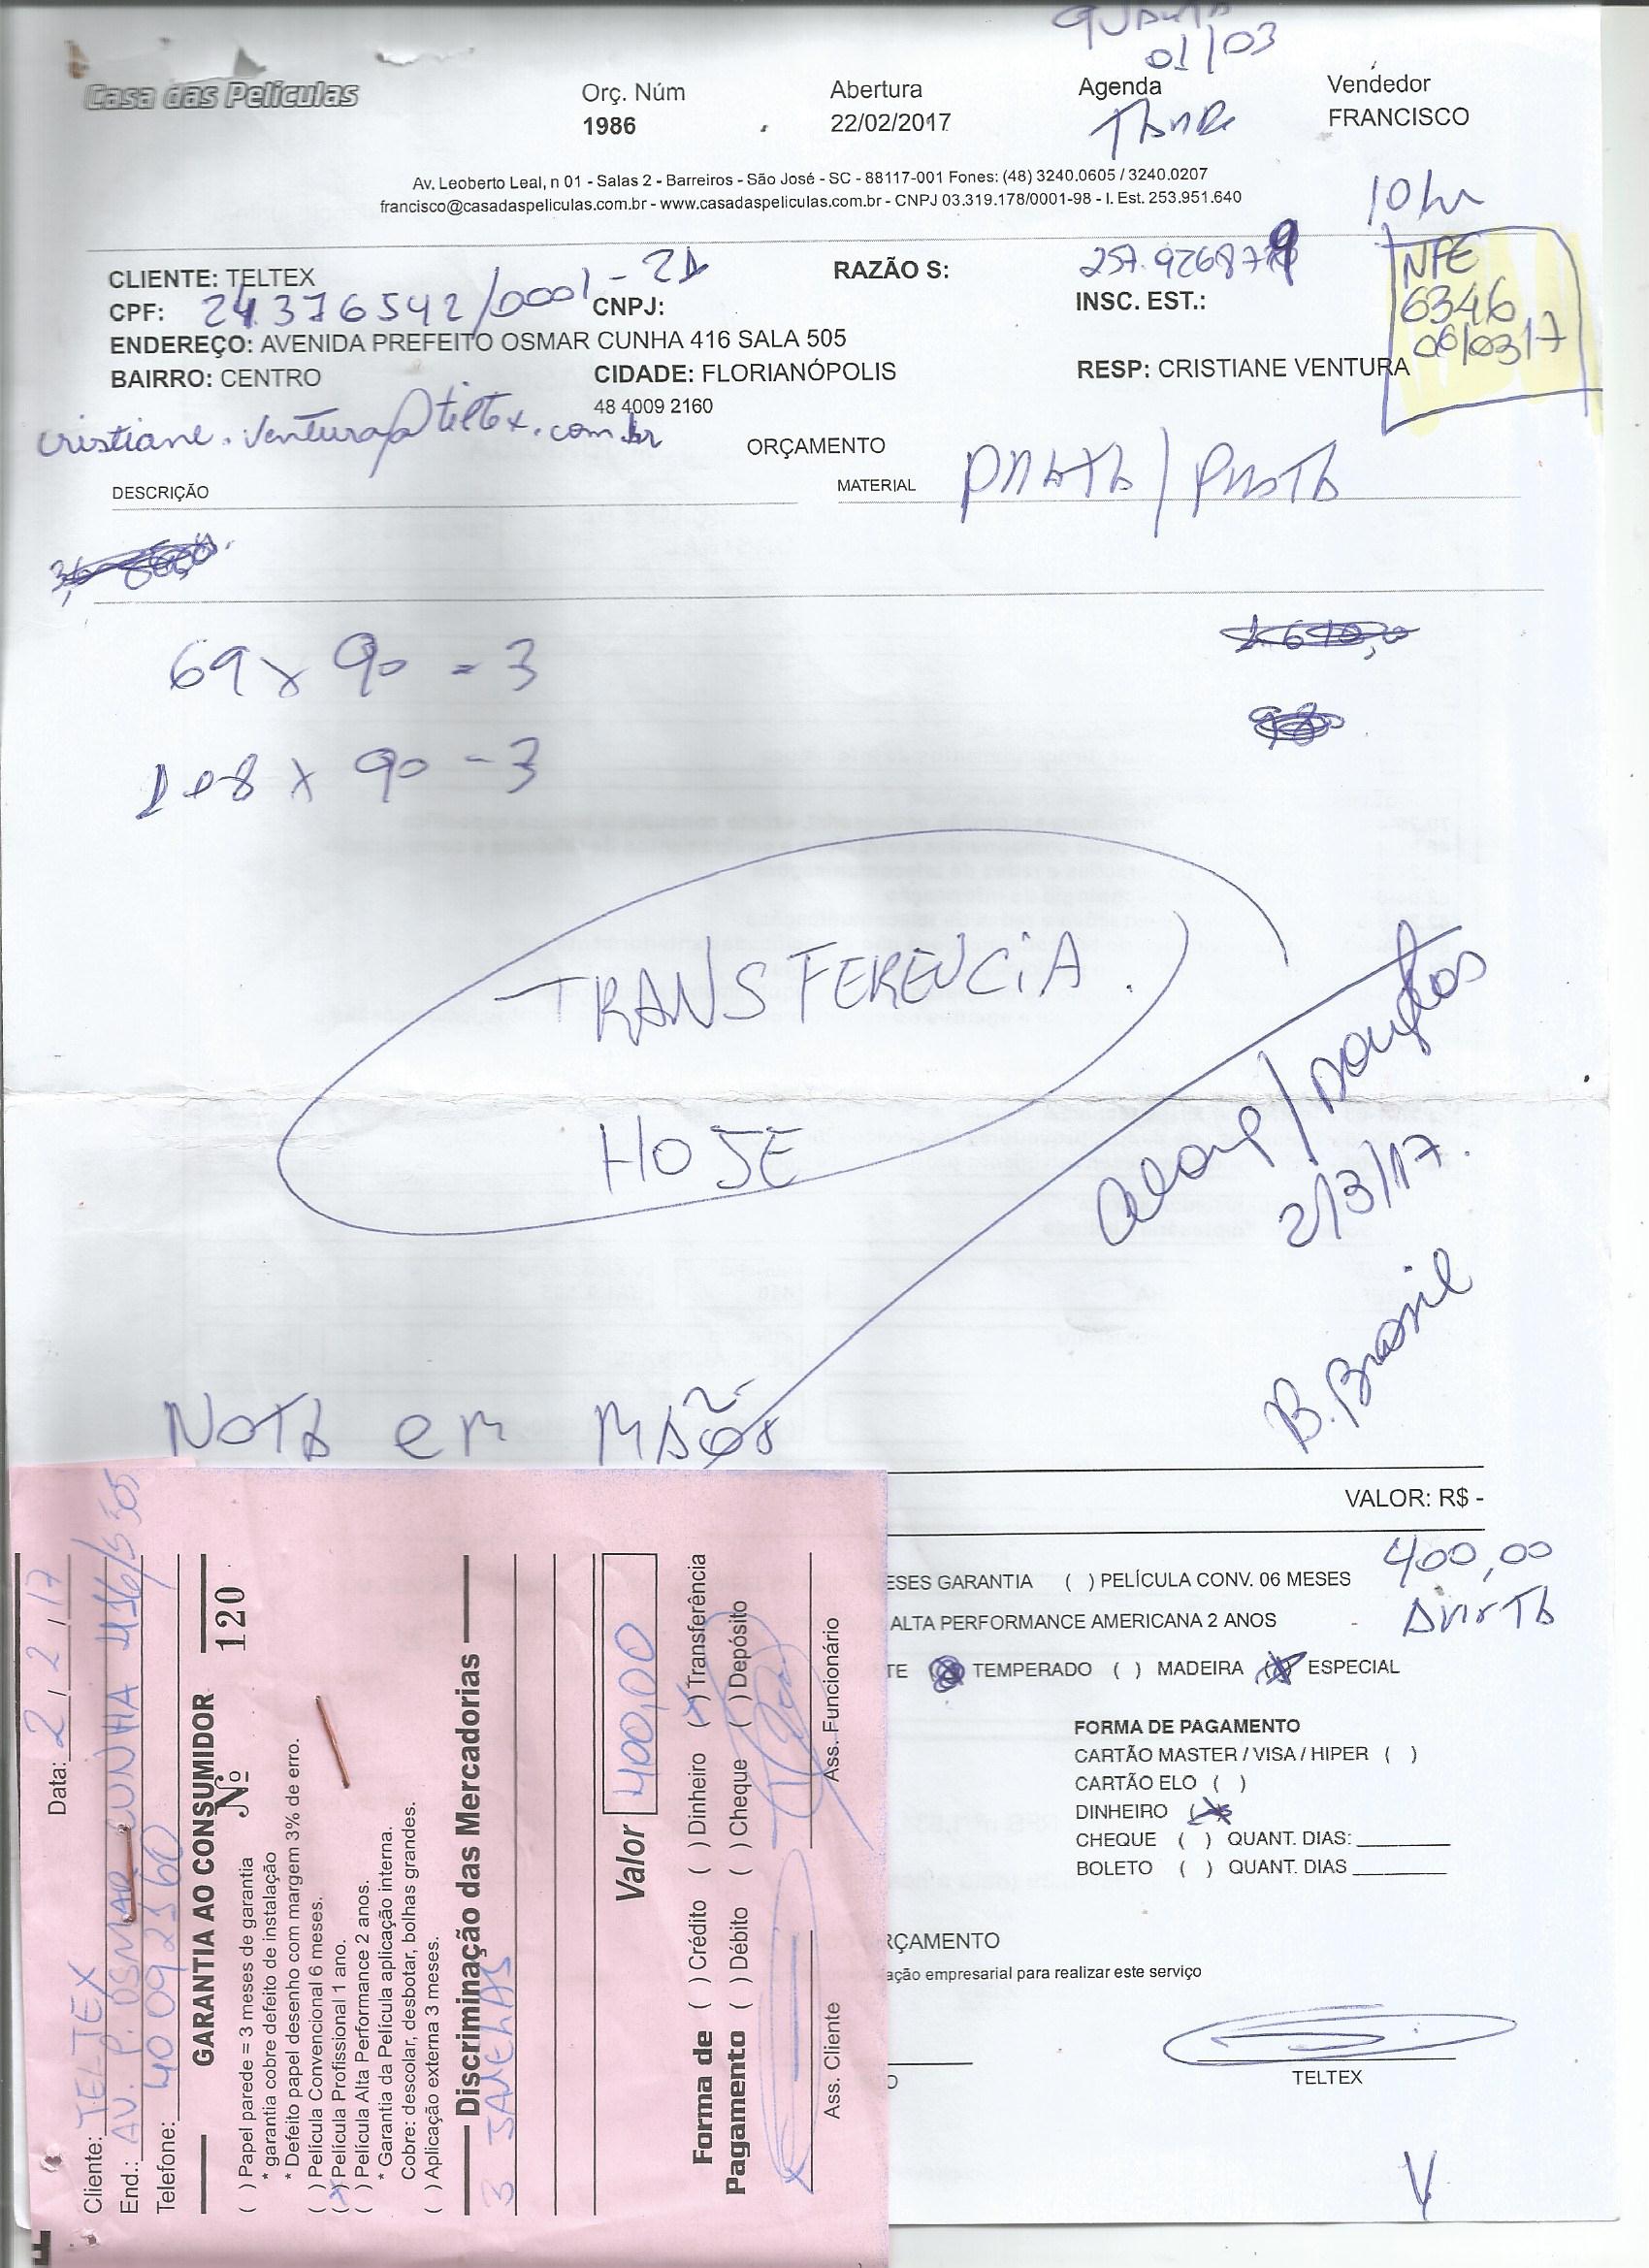 QUARTA
01/03
Casa das Películas
Orç. Núm
1986
Abertura
22/02/2017
Agenda
TARDE
Vendedor
FRANCISCO
Av. Leoberto Leal, n 01 - Salas 2 - Barreiros - São José - SC - 88117-001 Fones: (48) 3240.0605 / 3240.0207
francisco@casadaspeliculas.com.br - www.casadaspeliculas.com.br - CNPJ 03.319.178/0001-98 - I. Est. 253.951.640
10 hr
CLIENTE: TELTEX
RAZÃO S:
NFE
6346
06/03/17
CPF: 24376542/0001-21 CNPJ:
INSC. EST.:
ENDEREÇO: AVENIDA PREFEITO OSMAR CUNHA 416 SALA 505
BAIRRO: CENTRO CIDADE: FLORIANÓPOLIS RESP: CRISTIANE VENTURA
48 4009 2160
cristiane.ventura@teltex.com.br
ORÇAMENTO
DESCRIÇÃO
MATERIAL PRATA / PRATA
69 x 90 = 3
108 x 90 - 3
TRANSFERENCIA.
HOJE
2/3/17.
B. Brasil
NOTA em MÃOS
VALOR: R$ -
400,00
ESES GARANTIA ( ) PELÍCULA CONV. 06 MESES
ALTA PERFORMANCE AMERICANA 2 ANOS -
TE TEMPERADO ( ) MADEIRA (X) ESPECIAL
FORMA DE PAGAMENTO
CARTÃO MASTER / VISA / HIPER ( )
CARTÃO ELO ( )
DINHEIRO (X)
CHEQUE ( ) QUANT. DIAS:
BOLETO ( ) QUANT. DIAS
RÇAMENTO
ação empresarial para realizar este serviço
TELTEX
O
Cliente: TELTEX Data: 2 / 2 / 17
End.: AV. P. OSMAR CUNHA 416/S 505
Telefone: 4009 2160
GARANTIA AO CONSUMIDOR
Nº 120
( ) Papel parede = 3 meses de garantia
* garantia cobre defeito de instalação
* Defeito papel desenho com margem 3% de erro.
( ) Película Convencional 6 meses.
(X) Película Profissional 1 ano.
( ) Película Alta Performance 2 anos.
* Garantia da Película aplicação interna.
Cobre: descolar, desbotar, bolhas grandes.
( ) Aplicação externa 3 meses.
Discriminação das Mercadorias
3 JANELAS
Valor 400,00
Forma de Pagamento
( ) Crédito ( ) Dinheiro (X) Transferência
( ) Débito ( ) Cheque ( ) Depósito
Ass. Cliente
Ass. Funcionário